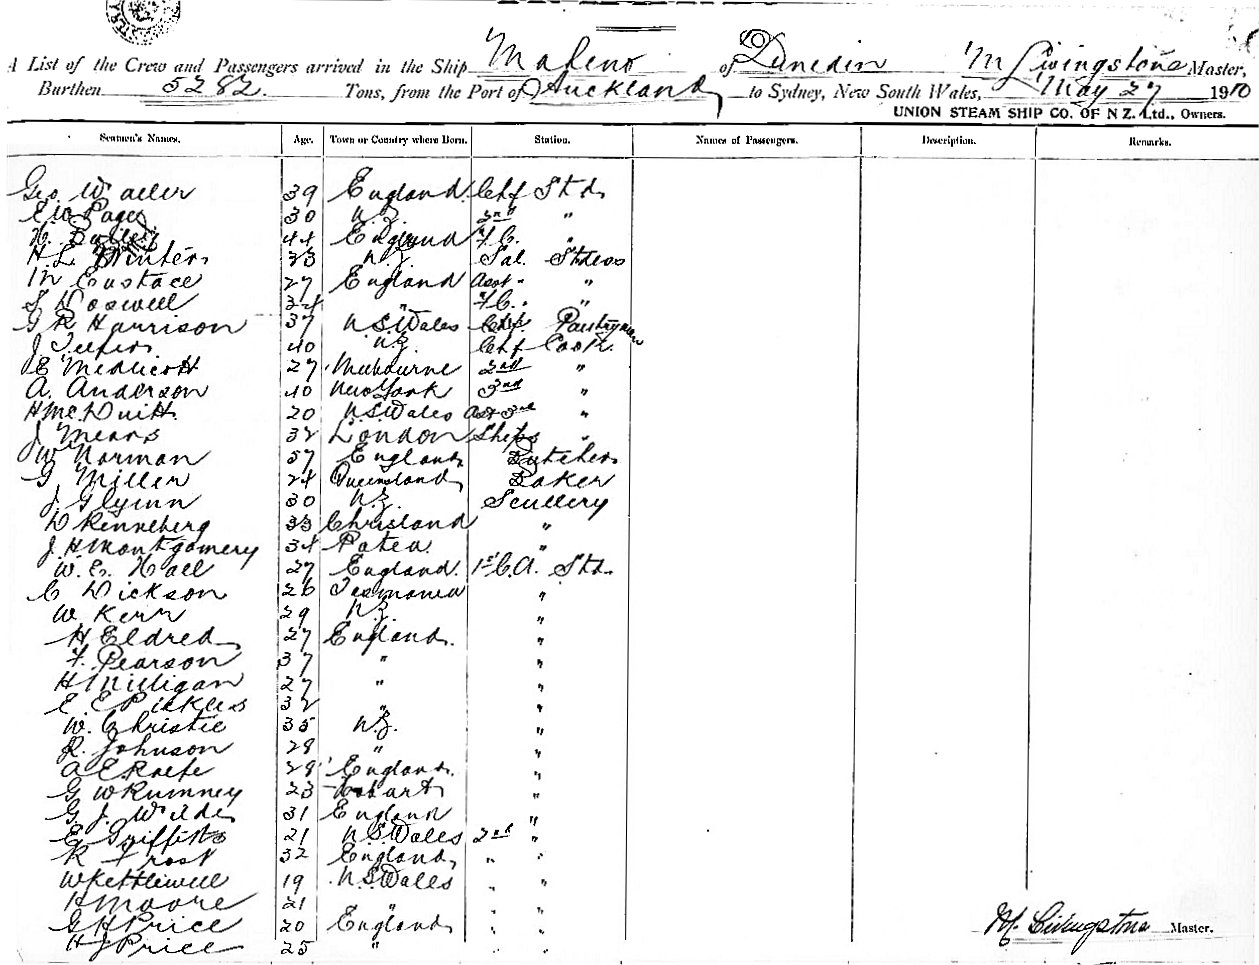 A List of the Crew and Passengers arrived in the Ship Maheno of Dunedin M Livingstone Master,
Burthen 5282 Tons, from the Port of Auckland to Sydney, New South Wales, May 27 1910
UNION STEAM SHIP CO. OF N Z. Ltd., Owners.
Seamen's Names. Age. Town or Country where Born. Station. Names of Passengers. Description. Remarks.
Geo. Waller 39 England. Chf Std.
E W Page 30 N.Z. 2nd "
H. 44 England F.C. "
H L Winters 33 N.Z. Sal. Stdess
M Eustace 27 England Asst " "
S Doswell 34 " F.C. " "
G R Harrison 37 N.S.Wales Chf. Pastryman
J 40 N.Z. Chf Cook.
E Medlicott 27 Melbourne 2nd "
A. Anderson 40 New York 3rd "
H Mc.Duitt. 20 N.S.Wales Asst 3rd "
J Mears 32 London Ships "
W Norman 57 England Butcher
G Miller 24 Queensland Baker
J. Glynn 30 N.Z. Scullery
D Renneberg 33 "
J. H Montgomery 34 Patea. "
W. E. Hall 27 England. 1st C.A. Std.
C Dickson 26 Tasmania "
W Kerr 29 N.Z. "
H Eldred 27 England. "
F. Pearson 37 " "
H Milligan 27 " "
E E Pickles 32 " "
W. Christie 35 N.Z. "
R. Johnson 28 " "
A E 28 England. "
G W Rumney 23 Hobart "
G. J. Wilde 31 England "
E Griffiths 21 N.S.Wales 2nd "
R Frost 32 England " "
W Kettlewell 19 N.S.Wales " "
H Moore 21 " " "
G H Price 20 England " "
H J Price 25 " " "
M. Livingstone Master.